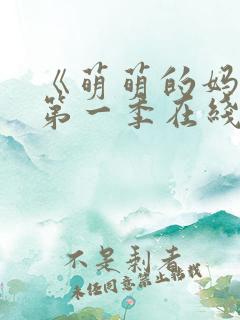 《萌萌的妈
第一季在线
不是剩者
未经同意禁止转载